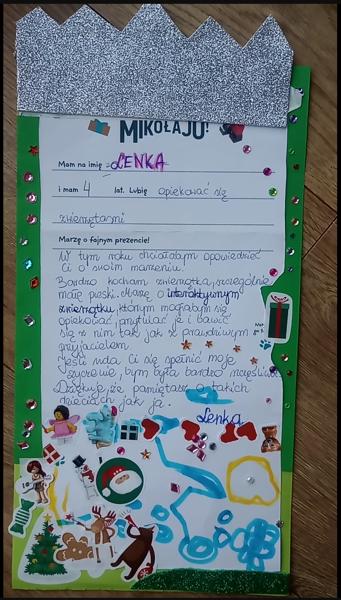 MIKOŁAJU!
Mam na imię LENKA
i mam 4 lat. Lubię opiekować się
zwierzętami
Marzę o fajnym prezencie!
W tym roku chciałabym opowiedzieć
Ci o swoim marzeniu.
Bardzo kocham zwierzątka, szczególnie
małe pieski. Marzę o interaktywnym
zwierzątku, którym mogłabym się
opiekować, przytulać je i bawić
się z nim tak jak z prawdziwym
przyjacielem.
Jeśli uda Ci się spełnić moje
życzenie, bym była bardzo szczęśliwa.
Dziękuję, że pamiętasz o takich
dzieciach jak ja.
Lenka